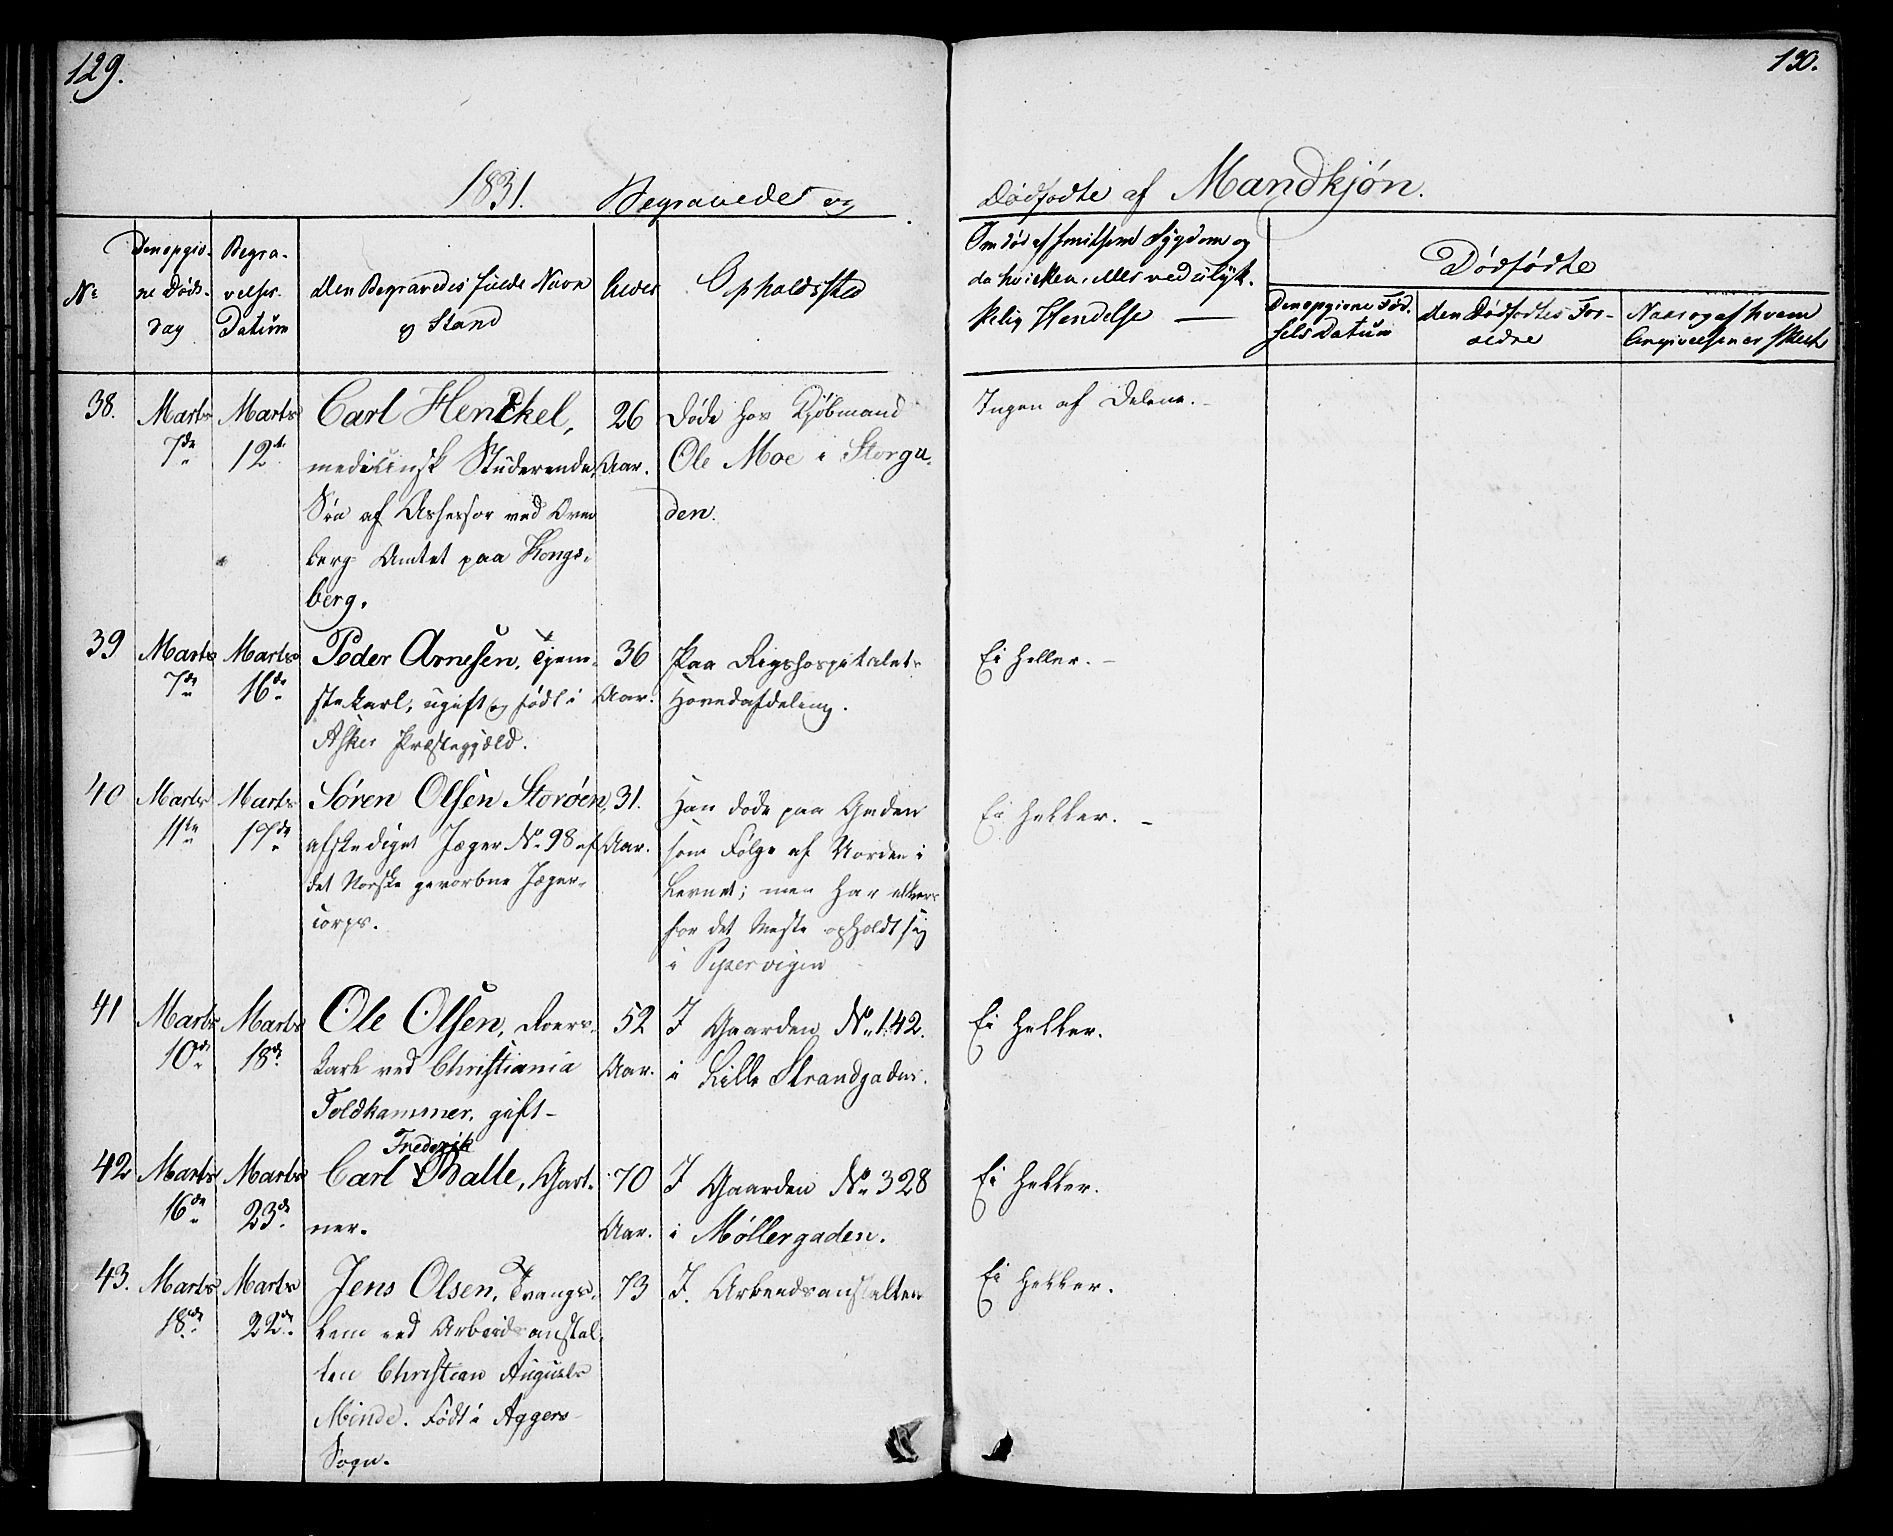 129.
130.
1831. Begravede og
Dødfødte af Mandkjön.
No
Den opgiv-
ne Døds-
dag
Begra-
velses
Datum
den Begravedes fulde Navn
og Stand
Alder
Opholdssted
Om død af smitsom Sygdom og
da hvilken, eller ved ulyk-
kelig Hendelse
Dødfødte
Den opgivne Fød-
sels Datum
den Dødfødtes For-
ældre
Naar og af hvem
Angivelsen er skeet
38.
Marts
7de
Marts
12te
Carl Henckel,
medicinsk Studerende,
Søn af Assessor ved Over
berg Amtet paa Kongs-
berg.
26
Aar.
døde hos Kjøbmand
Ole Moe i Storga-
den.
Ingen af Delene.
39
Marts
7de
Marts
16de
Peder Arnesen, Tjene-
stekarl, ugift og födt i
Asker Præstegjæld.
36
Aar.
Paa Rigshospitalets
Hovedafdeling.
Ei heller.
40
Marts
11te
Marts
17de
Sören Olsen Storöen,
afskediget Jæger No 98 af
det Norske gevorbne Jæger-
corps.
31.
Aar.
Han döde paa Gaden
som Fölge af
men har
for det Meste opholdt sig
i Pipervigen
Ei heller.
41
Marts
10de
Marts
18de
Ole Olsen, Roers-
karl ved Christiania
Toldkammer, gift
52
Aar.
I Gaarden No 142.
i Lille Strandgaden.
Ei heller.
42
Marts
16de
Marts
23de
Frederik
Carl Balle, Gart-
ner.
70
Aar.
I Gaarden No 328
i Møllergaden.
Ei heller.
43.
Marts
18de
Marts
22de
Jens Olsen, Tvangs-
lem ved Arbeidsanstal-
ten Christian Augusts
Minde. Födt i Aggers
Sogn.
73
I Arbeidsanstalten
Ei heller.